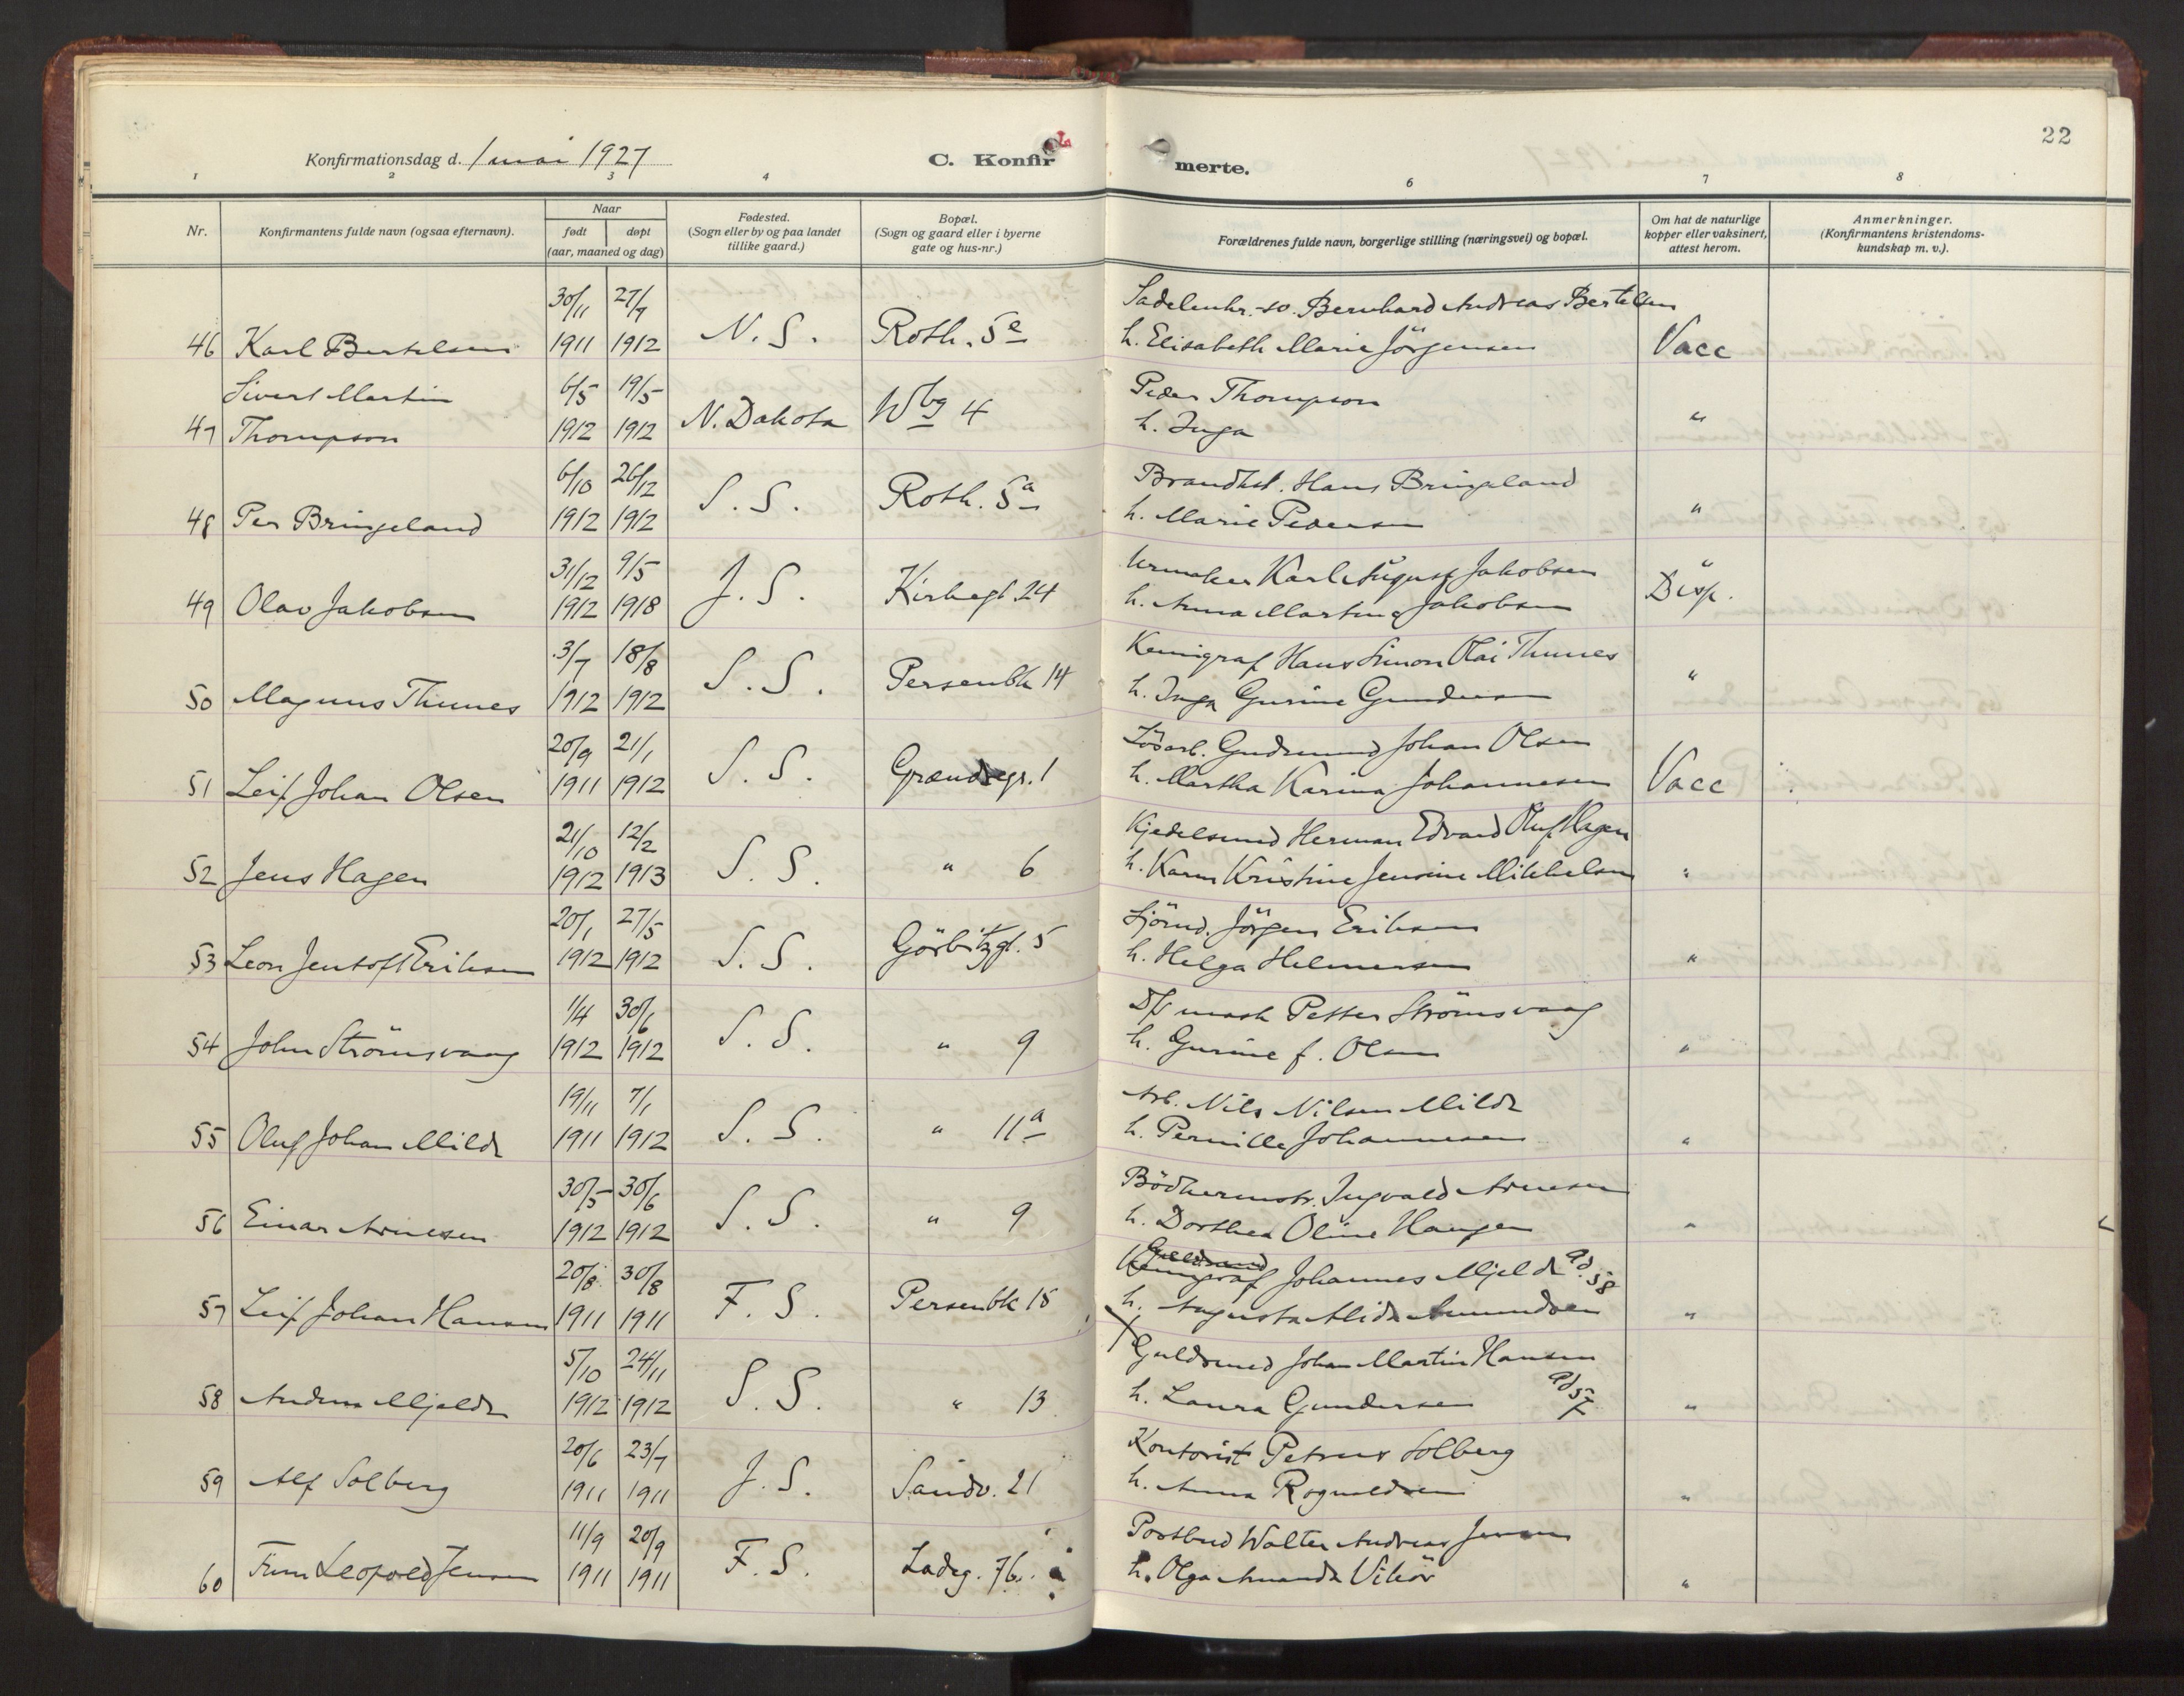 22
Konfirmationsdag d. 1 mai 1927
C. Konfirmerte.
1 2 3 4 6 7 8
Nr.
Konfirmantens fulde navn (ogsaa efternavn).
Naar
født døpt
(aar, maaned og dag)
Fødested.
(Sogn eller by og paa landet
tillike gaard.)
Bopæl.
(Sogn og gaard eller i byerne
gate og hus-nr.)
Forældrenes fulde navn, borgerlige stilling (næringsvei) og bopæl.
Om hat de naturlige
kopper eller vaksinert,
attest herom.
Anmerkninger.
(Konfirmantens kristendoms-
kundskap m. v.).
30/11 27/7 Bernhard Andreas Bertelsen
46 Karl Bertelsen 1911 1912 N. S. Roth. 5e h. Elisabeth Marie Jörgensen Vacc
Sivert Martin 6/5 19/5 Peder Thompson
47 Thompson 1912 1912 N. Dakota Wbg 4 h. Inga "
6/10 26/12 Brandkst. Hans Bringeland
48 Per Bringeland 1912 1912 S. S. Roth. 5a h. Marie Pedersen "
31/12 9/5 Urmaker Karl August Jakobsen "
49 Olav Jakobsen 1912 1918 J. S. Kirkegt. 24 h. Anna Martine Jakobsen Disp.
3/7 18/8 Kemigraf Hans Simon Olai Thunes
50 Magnus Thunes 1912 1912 S. S. Persenbk 14 h. Inga Gurine Gundersen "
20/9 21/1 Lösarb. Gudmund Johan Olsen
51 Leif Johan Olsen 1911 1912 S. S. Grændsegr. 1 h. Martha Karina Johannesen Vacc
21/10 12/2 Kjedelsmed Herman Edvard Oluf Hagen
52 Jens Hagen 1912 1913 S. S. " 6 h. Karen Kristine Jensine Mikkelsen "
20/1 27/5 Sjömd. Jörgen Eriksen
53 Leon Jentoft Eriksen 1912 1912 S. S. Görbitzgt. 5 h. Helga Helmersen "
1/4 30/6 D/s mask Petter Strömsvaag
54 John Strömsvaag 1912 1912 S. S. " 9 h. Gurine f. Olsen "
19/11 7/1 Arb. Nils Nilsen Milde
55 Oluf Johan Milde 1911 1912 S. S. " 11a h. Pernille Johannesen "
30/5 30/6 Bödkermstr. Ingvald Arnesen
56 Einar Arnesen 1912 1912 S. S. " 9 h. Dorthea Oline Haugen "
20/8 30/8 Kemigraf Johannes Mjelde ad. 58
57 Leif Johan Hansen 1911 1911 F. S. Persenbk 18 h. Augusta Alida Amundsen "
5/10 24/11 Guldsmed Johan Martin Hansen
58 Anders Mjelde 1912 1912 S. S. " 13 h. Laura Gundersen ad 57 "
20/6 23/7 Kontorist Petrus Solberg
59 Alf Solberg 1911 1911 J. S. Sandv. 21 h. Anna Rognaldsen "
11/9 20/9 Postbud Walter Andreas Jensen
60 Finn Leopold Jensen 1911 1911 F. S. Ladeg. 76. h. Olga Amanda Vikör "